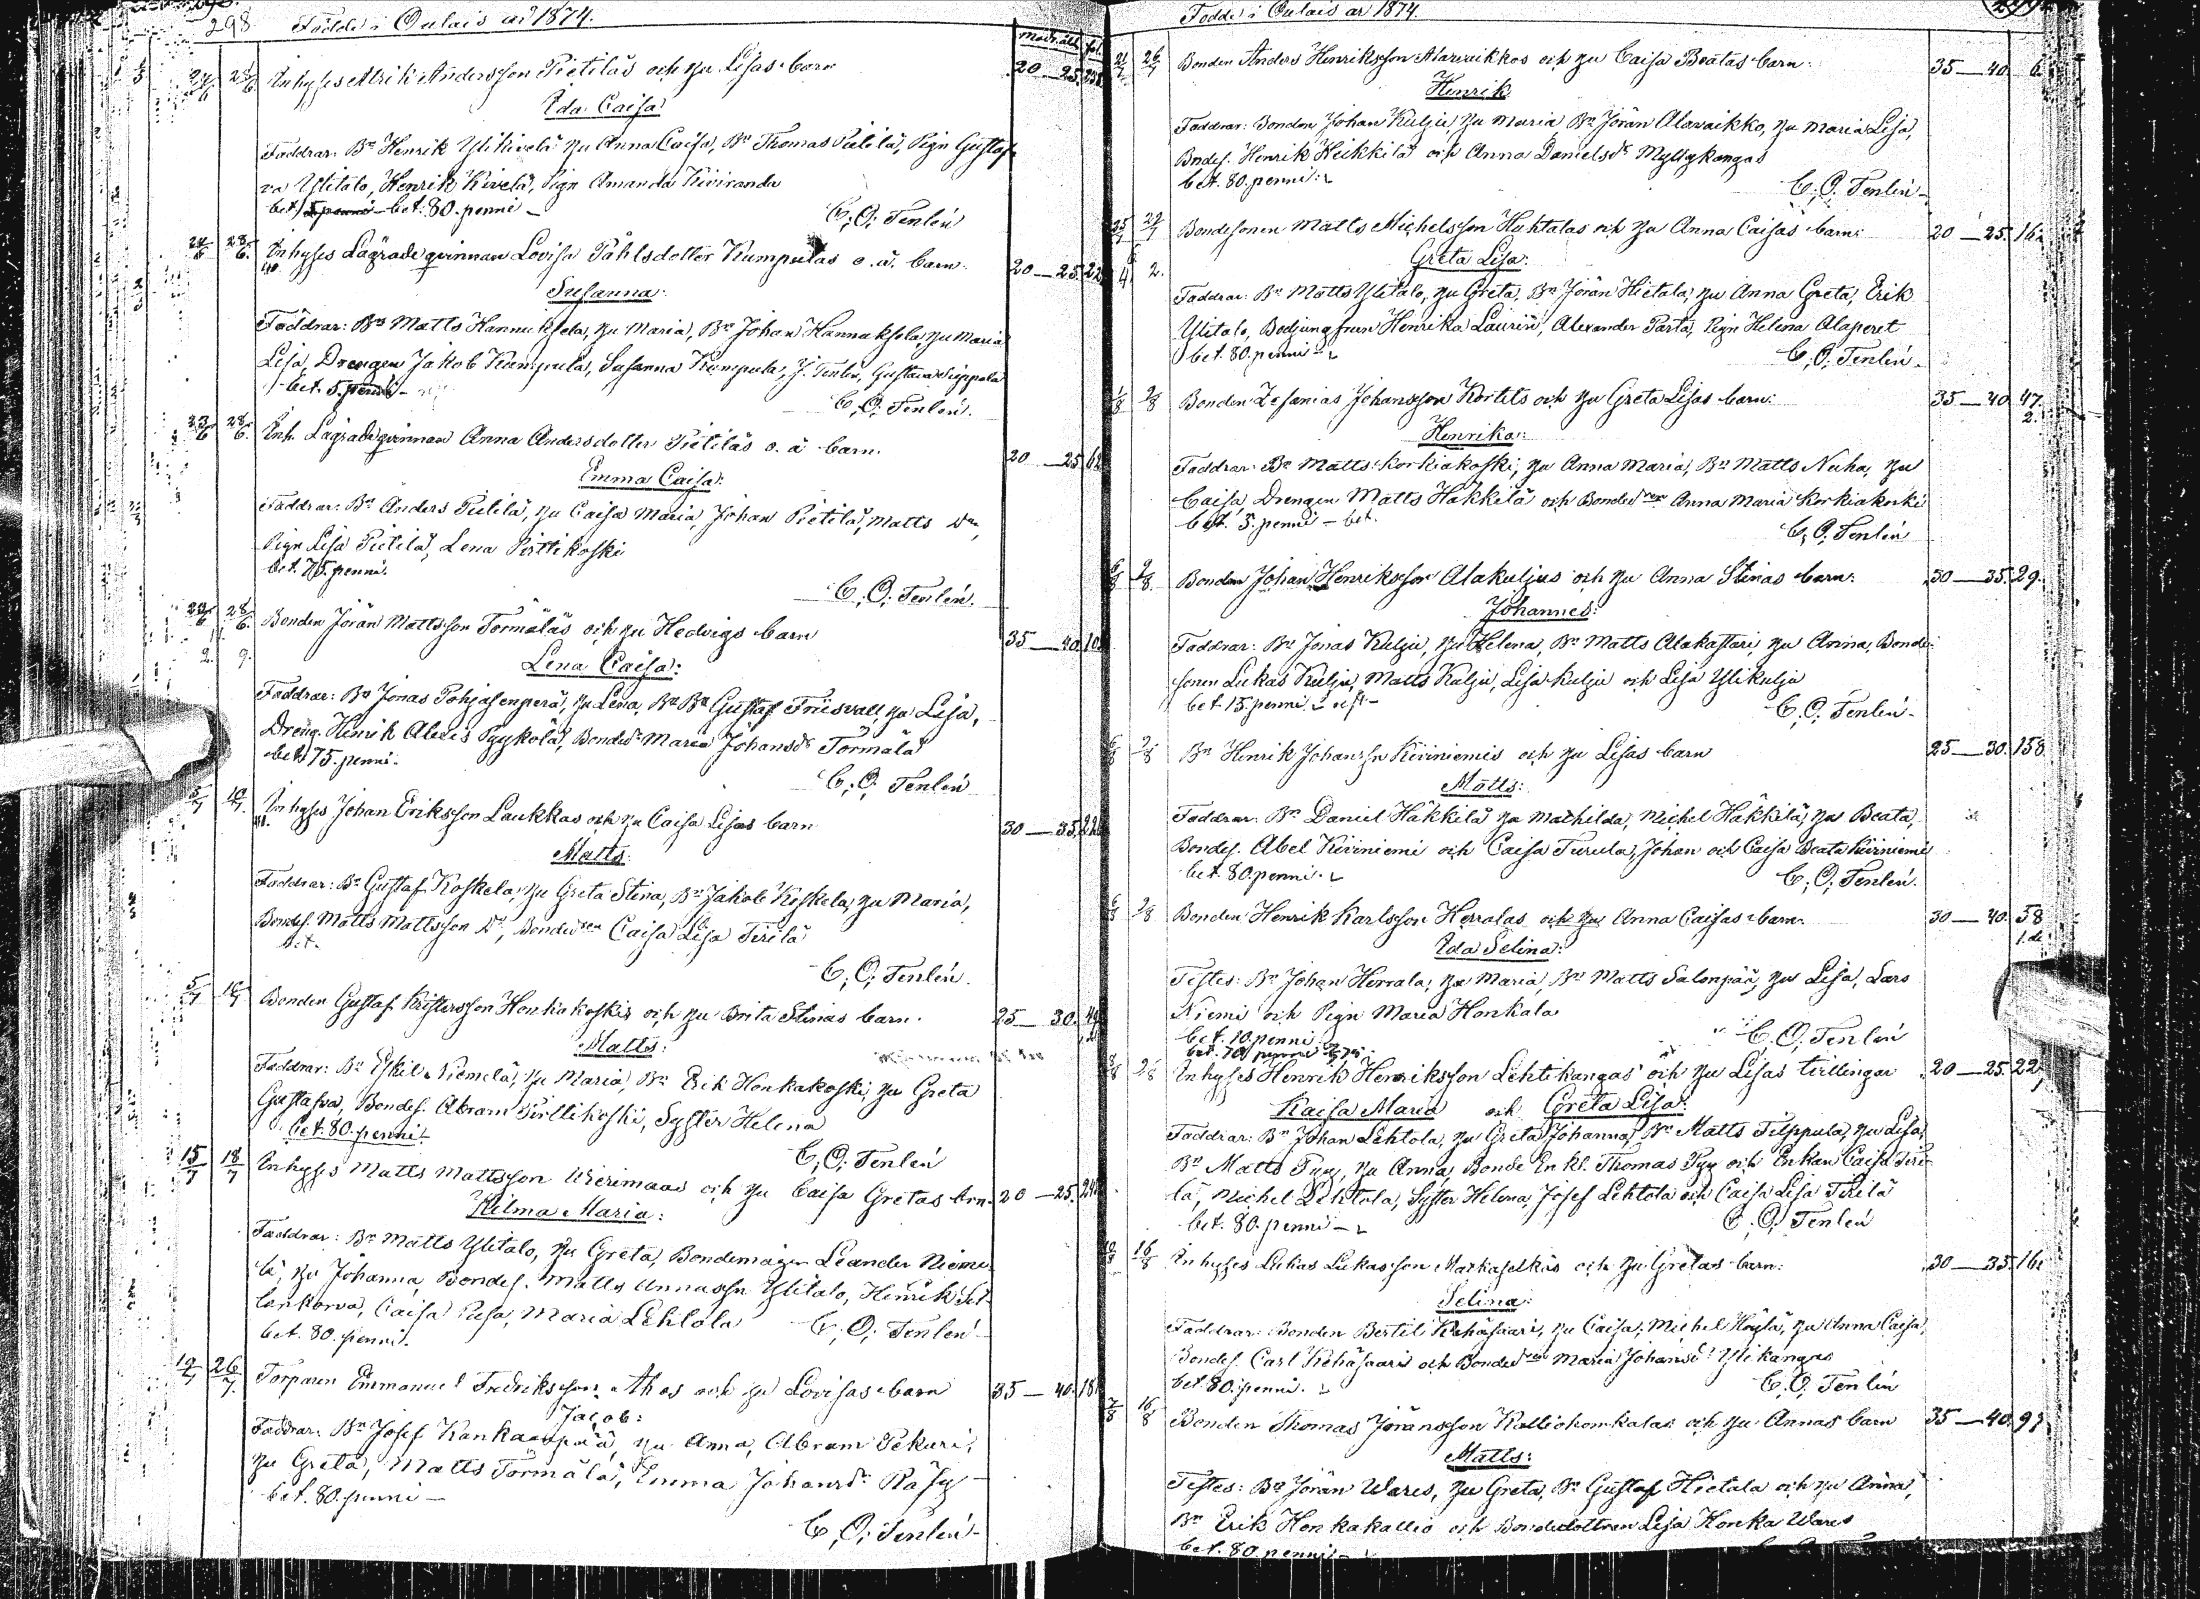 298 Födde i Oulais år 1874.
moders åld. fol.
24/6 28/6 Inhyses Alrik Andersson Pietiläs och hu Lisas barn 20—25.
Ida Caisa
Faddrar: Bn Henrik Ylikivelä hu Anna Caisa, Bn Thomas Pietilä, Pign Gustaf-
va Ylitalo, Henrik Kivelä, Pign Amanda Kiviranda
bet. 80. penni —
C. O. Tenlén
24/6 28/6. Inhyses Lägrade qvinnan Lovisa Påhlsdotter Kumpulas o. ä. barn. 20—25.
Susanna:
Faddrar: Bn Matts Hannuksela, hu Maria, Bn Johan Hannuksela, hu Maria
Lisa, Drengen Jakob Kumpula, Susanna Kumpula, J. Tenlén, Gustava Seppola
bet. 5. penni —
C. O. Tenlén.
23/6 28/6. Inh. Lägrade qvinnan Anna Andersdotter Pietiläs o. ä. barn. 20—25
Emma Caisa:
Faddrar: Bn Anders Pietilä, hu Caisa Maria, Johan Pietilä, Matts Dn,
Pign Lisa Pietilä, Lena Pirttikoski
bet. 75. penni.
C. O. Tenlén.
22/6 28/6. Bonden Jöran Mattsson Törmäläs och hu Hedvigs barn 35—40.
2. 9.
Lena Caisa:
Faddrar: Bn Jonas Pohjasenperä, hu Lena, Bn Gustaf Friesvall, hu Lisa,
Dreng. Henrik Alexis Pyykölä, Bonded. Maria Johansdr Törmälä
bet. 75. penni.
C. O. Tenlén
5/7 10/7. Inhyses Johan Eriksson Laukkas och hu Caisa Lisas barn 30—35.
Matts:
Faddrar: Bn Gustaf Koskela, hu Greta Stina, Bn Jakob Koskela, hu Maria,
Bondes. Matts Mattsson Do, Bondedtren Caisa Lisa Tirilä
bet.
C. O. Tenlén.
5/7 10/7 Bonden Gustaf Kristersson Honkakoskis och hu Brita Stinas barn. 25—30.
Matts:
Faddrar: Bn Eskil Niemelä, hu Maria, Bn Erik Honkakoski, hu Greta
Gustafva, Bondes. Abram Pirttikoski, Syster Helena
bet. 80. penni —
C. O. Tenlén
15/7 18/7 Inhyses Matts Mattsson Wierimaas och hu Caisa Gretas brn. 20—25.
Hilma Maria:
Faddrar: Bn Matts Ylitalo, hu Greta, Bondemågen Leander Nieme-
lä, hu Johanna, Bondes. Matts Annassn Ylitalo, Henrik Sil-
lankorva, Caisa Pasa, Maria Lehtola
C. O. Tenlén
bet. 80. penni.
19/7 26/7. Torparen Emmanuel Fredriksson Ahos och hu Lovisas barn 35—40.
Jacob:
Faddrar: Bn Josef Kankaanpää, hu Anna, Abram Pekuri,
hu Greta, Matts Törmälä, Emma Johansdr Räsy
bet. 80. penni —
C. O. Tenlén —
Födde i Oulais år 1874. 299
21/7 26/7 Bonden Anders Henriksson Alavaikkos och hu Caisa Beatas barn: 35—40. 6.
Henrik
Faddrar: Bonden Johan Kulju, hu Maria, Bn Jöran Alavaikko, hu Maria Lisa,
Bndes. Henrik Heikkilä och Anna Danielsdr Myllykangas
bet. 80. penni.
C. O. Tenlén —
25/7 27/7 Bondesonen Matts Michelsson Huhtalas och hu Anna Caisas barn: 20—25. 16
4. 2.
Greta Lisa:
Faddrar: Bn Matts Ylitalo, hu Greta, Bn Jöran Hietala, hu Anna Greta, Erik
Ylitalo, Bodjungfrun Henrika Laurin, Alexander Parta, Pign Helena Alaperet
bet. 80. penni —
C. O. Tenlén.
1/8 2/8 Bonden Zefanias Johansson Kortets och hu Greta Lisas barn: 35—40 47. 2.
Henrika:
Faddrar: Bn Matts Korkiakoski, hu Anna Maria, Bn Matts Naha, hu
Caisa, Drengen Matts Häkkilä och Bondedtren Anna Maria Korkiakoski
bet. 5. penni — bet.
C. O. Tenlén
6/8 9/8. Bonden Johan Henriksson Alakuljus och hu Anna Stinas barn: 30—35. 29.
Johannes:
Faddrar: Bn Jonas Kulju, hu Helena, Bn Matts Alakastari, hu Anna, Bonde-
sonen Lukas Kulju, Matts Kulju, Lisa Kulju och Lisa Ylikulju
bet. 15. penni.
C. O. Tenlén.
Bn Henrik Johanssn Kiviniemis och hu Lisas barn 25—30. 158
Matts:
Faddrar: Bn Daniel Häkkilä hu Mathilda, Michel Häkkilä, hu Beata,
Bondes. Abel Kiviniemi och Caisa Turula, Johan och Caisa Beata Kiviniemi
bet. 80. penni.
C. O. Tenlén.
Bonden Henrik Karlsson Herralas och hu Anna Caisas barn: 30—40. 58
Ida Selina:
Testes: Bn Johan Herrala, hu Maria, Bn Matts Salonpää, hu Lisa, Lars
Niemi och Pign Maria Honkala
bet. 10. penni
C. O. Tenlén
Inhyses Henrik Henriksson Lehtikangas och hu Lisas tvillingar 20—25. 22
Kaisa Maria och Greta Lisa:
Faddrar: Bn Johan Lehtola, hu Greta Johanna, Bn Matts Filppula, hu Lisa,
Bn Matts Pyy, hu Anna, Bonde Enkl. Thomas Pyy och Enkan Caisa Tiri-
lä, Michel Lehtola, Syster Helena, Josef Lehtola och Caisa Lisa Tirilä
bet. 80. penni —
C. O. Tenlén
16/8 Inhyses Lukas Lukasson Markaselkäs och hu Gretas barn: 30—35. 16
Selina:
Faddrar: Bonden Bertil Kehäsaari, hu Caisa, Michel Höylä, hu Anna Caisa,
Bondes. Carl Kehäsaari och Bondedtren Maria Johansdr Ylikangas
bet. 80. penni.
C. O. Tenlén
16/8 Bonden Thomas Jöransson Kalliohonkalas och hu Annas barn 35—40. 97
Matts:
Testes: Bn Jöran Wares, hu Greta, Bn Gustaf Hietala och hu Anna,
Bn Erik Honkakallio och Bondedottren Lisa Honka Wares
bet. 80 penni —